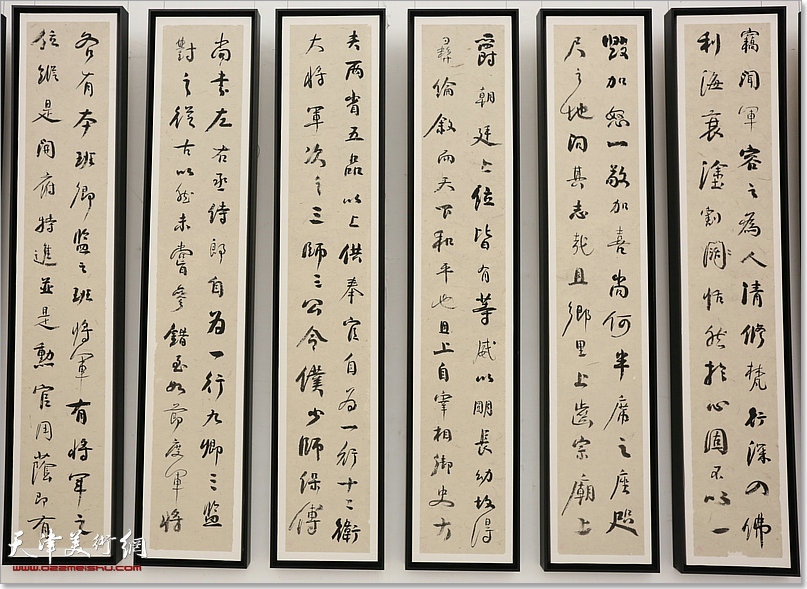 竊聞軍容之為人清修梵行深入佛
利海衰塗割闕恬然於心固不以一
毀加怒一敬加喜尚何半席之座咫
尺之地汩其志哉且鄉里上齒宗廟上
爵朝廷上位皆有等威以明長幼故得
彞倫敘而天下和平也且上自宰相御史大
夫兩省五品以上供奉官自為一行十二衛
大將軍次之三師三公令僕少師保傅
尚書左右丞侍郎自為一行九卿三監
對之從古以然未嘗參錯至如節度軍將
各有本班卿監之班將軍有將軍之
位縱是開府特進並是勲官用蔭即有
天津美術網
www.022meishu.com